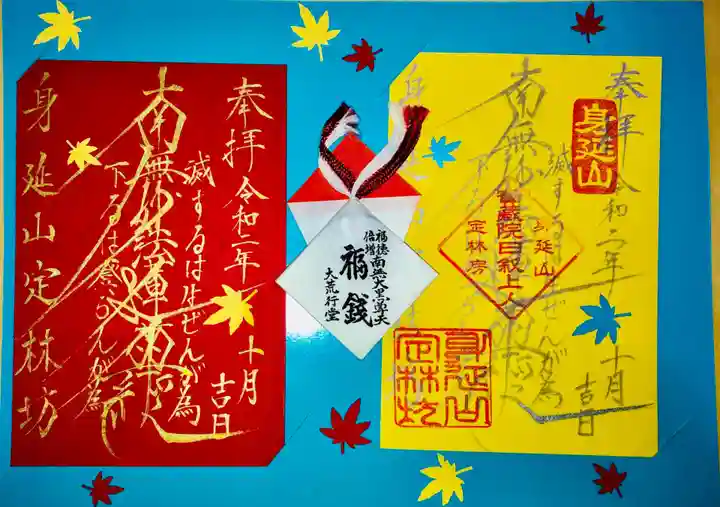 奉拝 令和二年 十月 吉日
滅するは生ぜんが為
南無妙法蓮華経
下るは登らんが為
身延山定林坊
福徳
倍増
南無大黒尊天
福銭
大荒行堂
奉拝 令和二年 十月 吉日
身延山
滅するは生ぜんが為
南無妙法蓮華経
身延山
定林房
身延山
定林坊